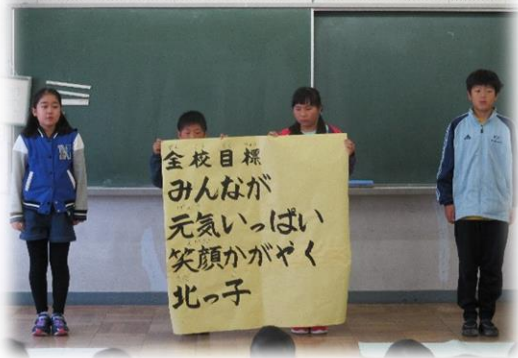 全校目標
みんなが
元気いっぱい
笑顔かがやく
北っ子